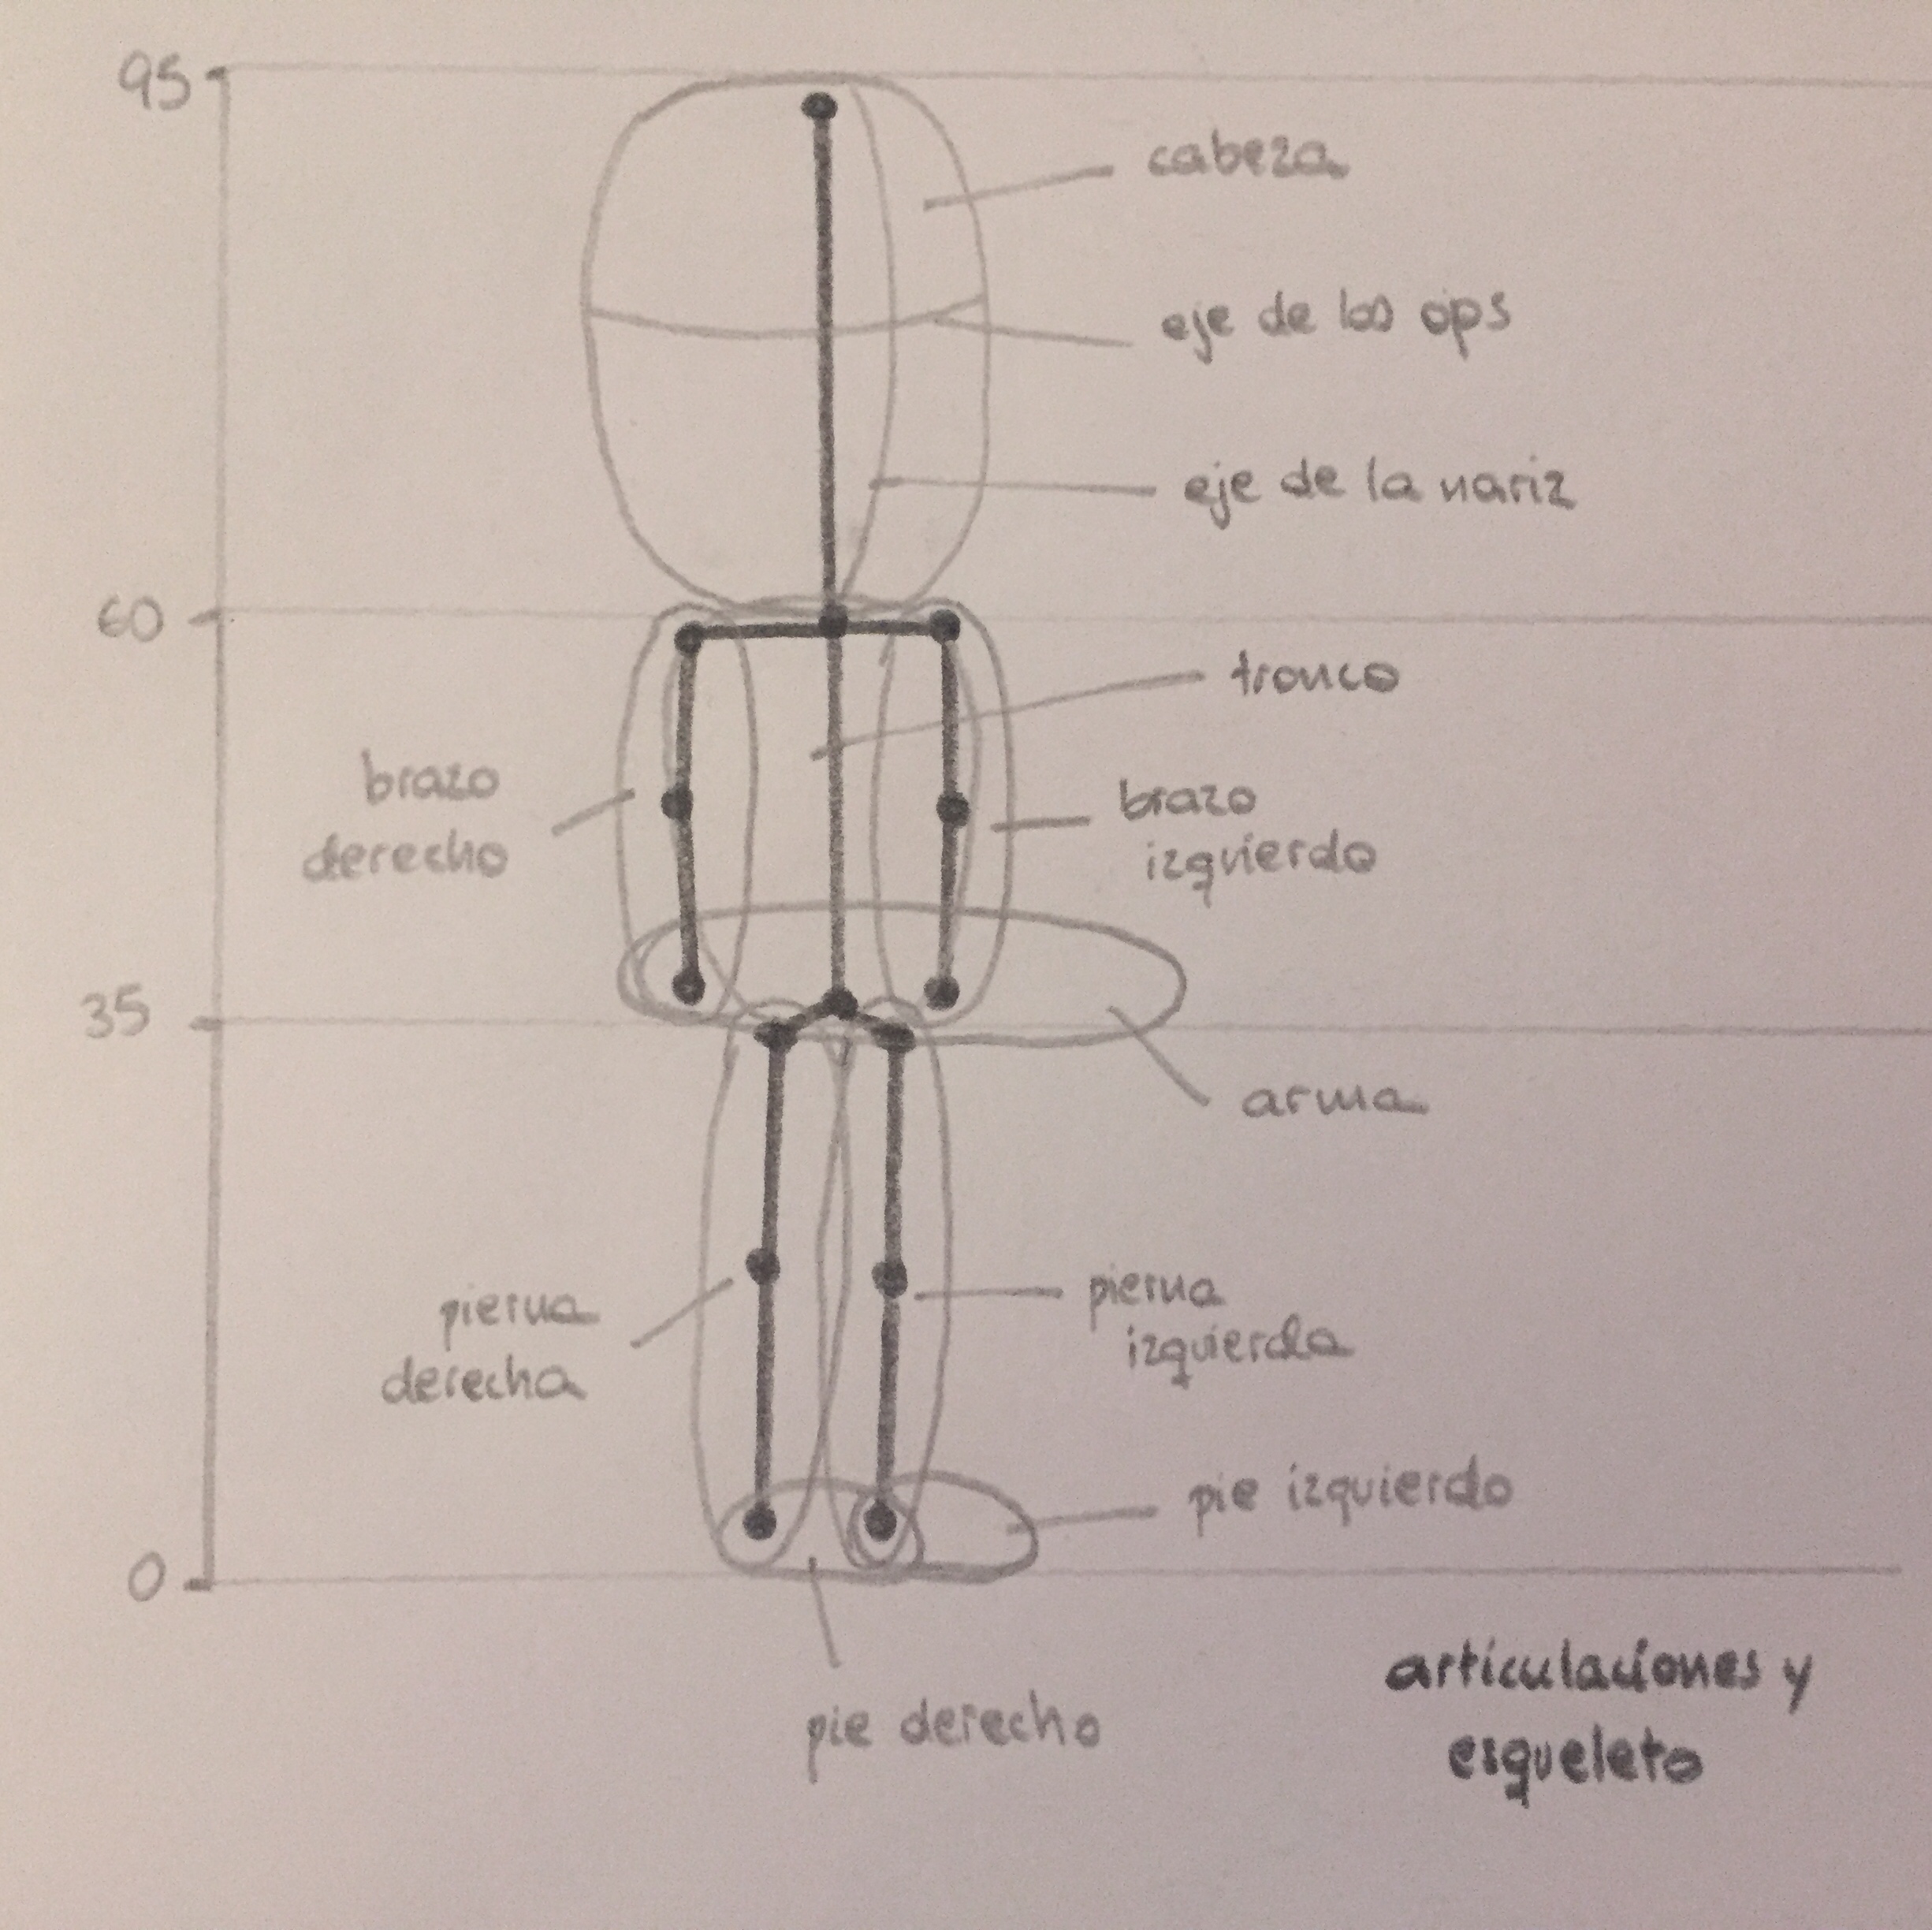 95
cabeza
eje de los ojos
eje de la nariz
60
tronco
brazo
derecho
brazo
izquierdo
35
arma
pierna
derecha
pierna
izquierda
pie izquierdo
0
pie derecho
articulaciones y
esqueleto